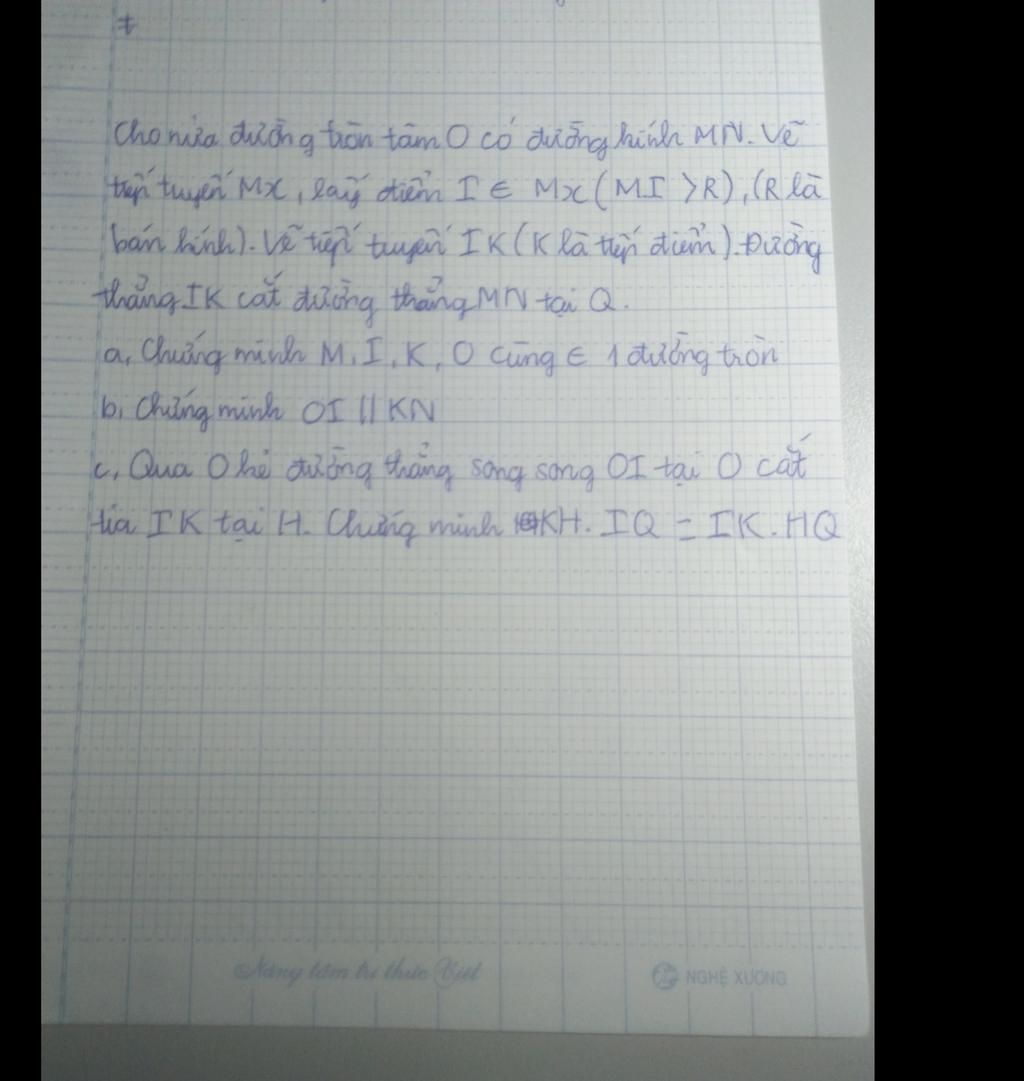 t
Cho nửa đường tròn tâm O có đường kính MN. Vẽ
tiếp tuyến Mx, lấy điểm I ∈ Mx (MI > R), (R là
bán kính). Vẽ tiếp tuyến IK (K là tiếp điểm). Đường
thẳng IK cắt đường thẳng MN tại Q.
a, Chứng minh M, I, K, O cùng ∈ 1 đường tròn
b, Chứng minh OI || KN
c, Qua O kẻ đường thẳng song song OI tại O cắt
tia IK tại H. Chứng minh KH. IQ = IK. HQ
Nâng tầm tri thức Việt
NGHỆ XƯƠNG